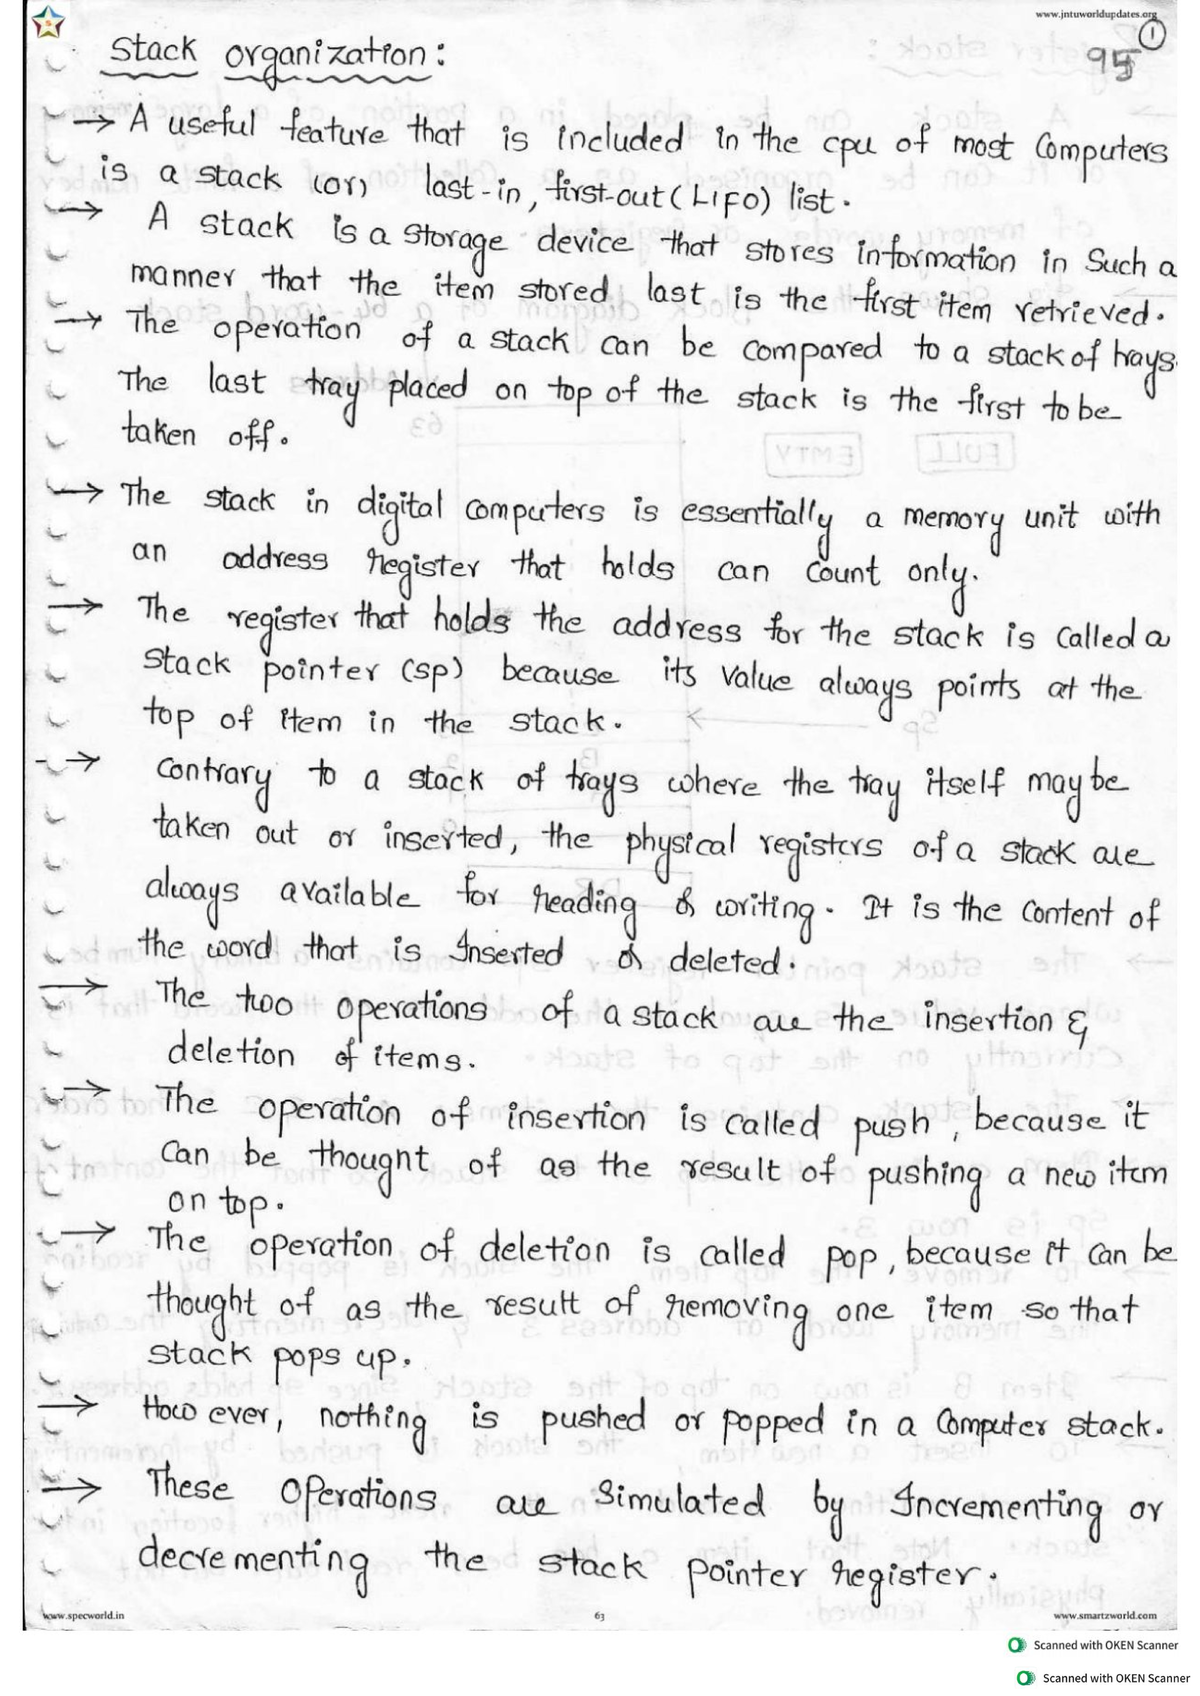 www.jntuworldupdates.org
1
95
Stack organization:
→ A useful feature that is included in the cpu of most Computers
is a stack (or) last-in, first-out (LIFO) list.
→ A stack is a storage device that stores information in Such a
manner that the item stored last is the first item retrieved.
→ The operation of a stack can be compared to a stack of trays.
The last tray placed on top of the stack is the first to be
taken off.
→ The stack in digital computers is essentially a memory unit with
an address register that holds can count only.
→ The register that holds the address for the stack is called a
stack pointer (sp) because its value always points at the
top of item in the stack.
→ Contrary to a stack of trays where the tray itself may be
taken out or inserted, the physical registers of a stack are
always available for reading or writing. It is the content of
the word that is Inserted or deleted.
→ The two operations of a stack are the insertion &
deletion of items.
→ The operation of insertion is called push, because it
can be thought of as the result of pushing a new item
on top.
→ The operation of deletion is called pop, because it can be
thought of as the result of removing one item so that
stack pops up.
→ How ever, nothing is pushed or popped in a Computer stack.
→ These Operations are Simulated by Incrementing or
decrementing the stack pointer register.
www.specworld.in
63
www.smartzworld.com
Scanned with OKEN Scanner
Scanned with OKEN Scanner